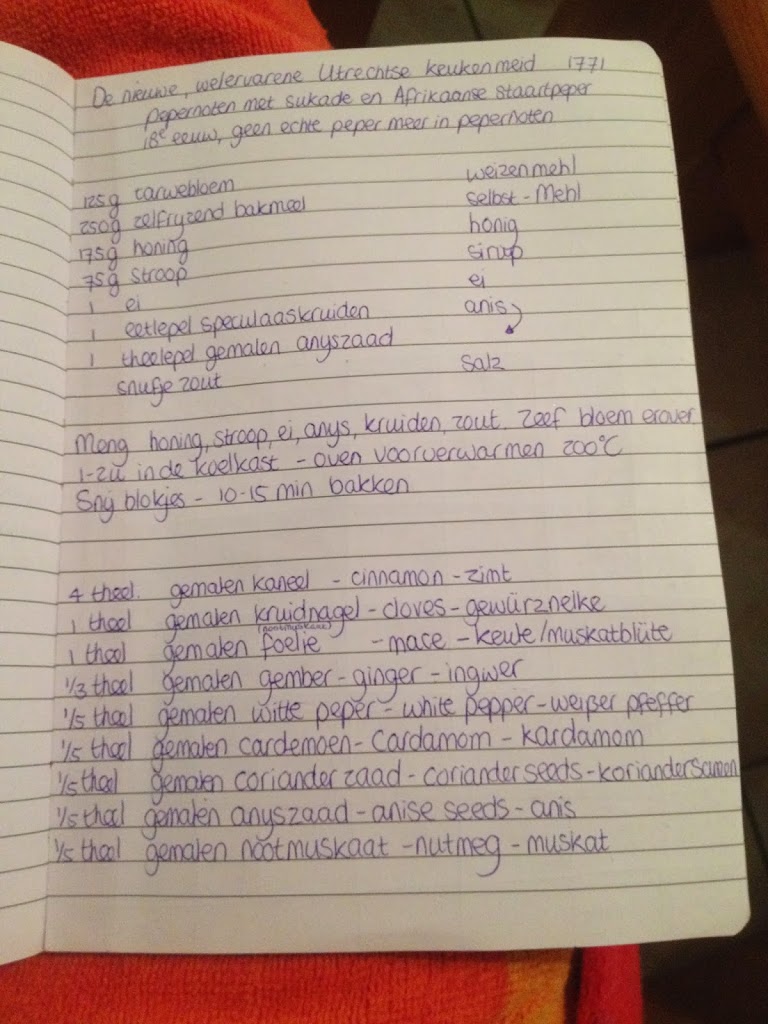 De nieuwe, welervarene Utrechtse keukenmeid 1771
Pepernoten met sukade en Afrikaanse staartpeper
18e eeuw, geen echte peper meer in pepernoten
125g tarwebloem weizenmehl
250g zelfryzend bakmeel selbst-Mehl
175g honing honig
75g stroop sirup
1 ei ei
1 eetlepel speculaaskruiden anis
1 theelepel gemalen anyszaad
snufje zout salz
Meng honing, stroop, ei, anys, kruiden, zout. Zeef bloem erover
1-2u in de koelkast - oven voorverwarmen 200°C
Snij blokjes - 10-15 min bakken
4 theel. gemalen kaneel - cinnamon - zimt
1 theel gemalen kruidnagel - cloves - gewürznelke
1 theel gemalen foelie - mace - keule/muskatblüte
1/3 theel gemalen gember - ginger - ingwer
1/5 theel gemalen witte peper - white pepper - weißer pfeffer
1/5 theel gemalen cardemoen - cardamom - kardamom
1/5 theel gemalen coriander zaad - coriander seeds - koriandersamen
1/5 theel gemalen anyszaad - anise seeds - anis
1/5 theel gemalen nootmuskaat - nutmeg - muskat